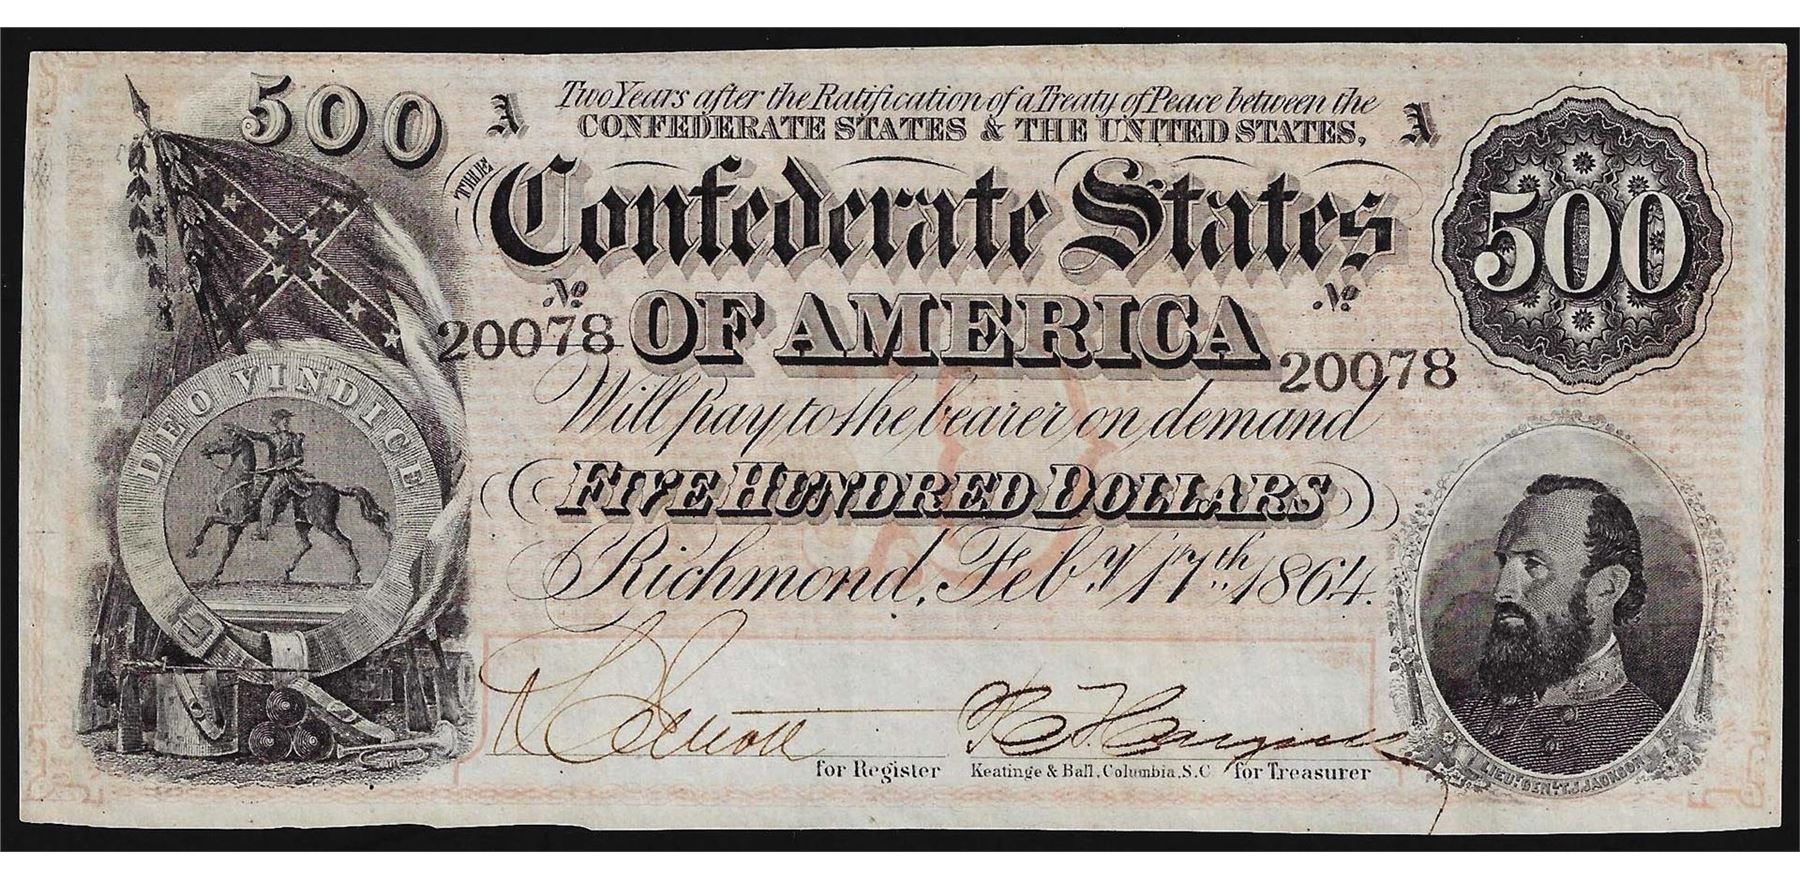 500
A Two Years after the Ratification of a Treaty of Peace between the A
CONFEDERATE STATES & THE UNITED STATES,
THE Confederate States
500
No. No.
20078 OF AMERICA 20078
Will pay to the bearer on demand
FIVE HUNDRED DOLLARS
Richmond, Feby. 17th. 1864.
DEO VINDICE
for Register Keatinge & Ball, Columbia, S.C. for Treasurer
LIEUT. GENL. T.J. JACKSON